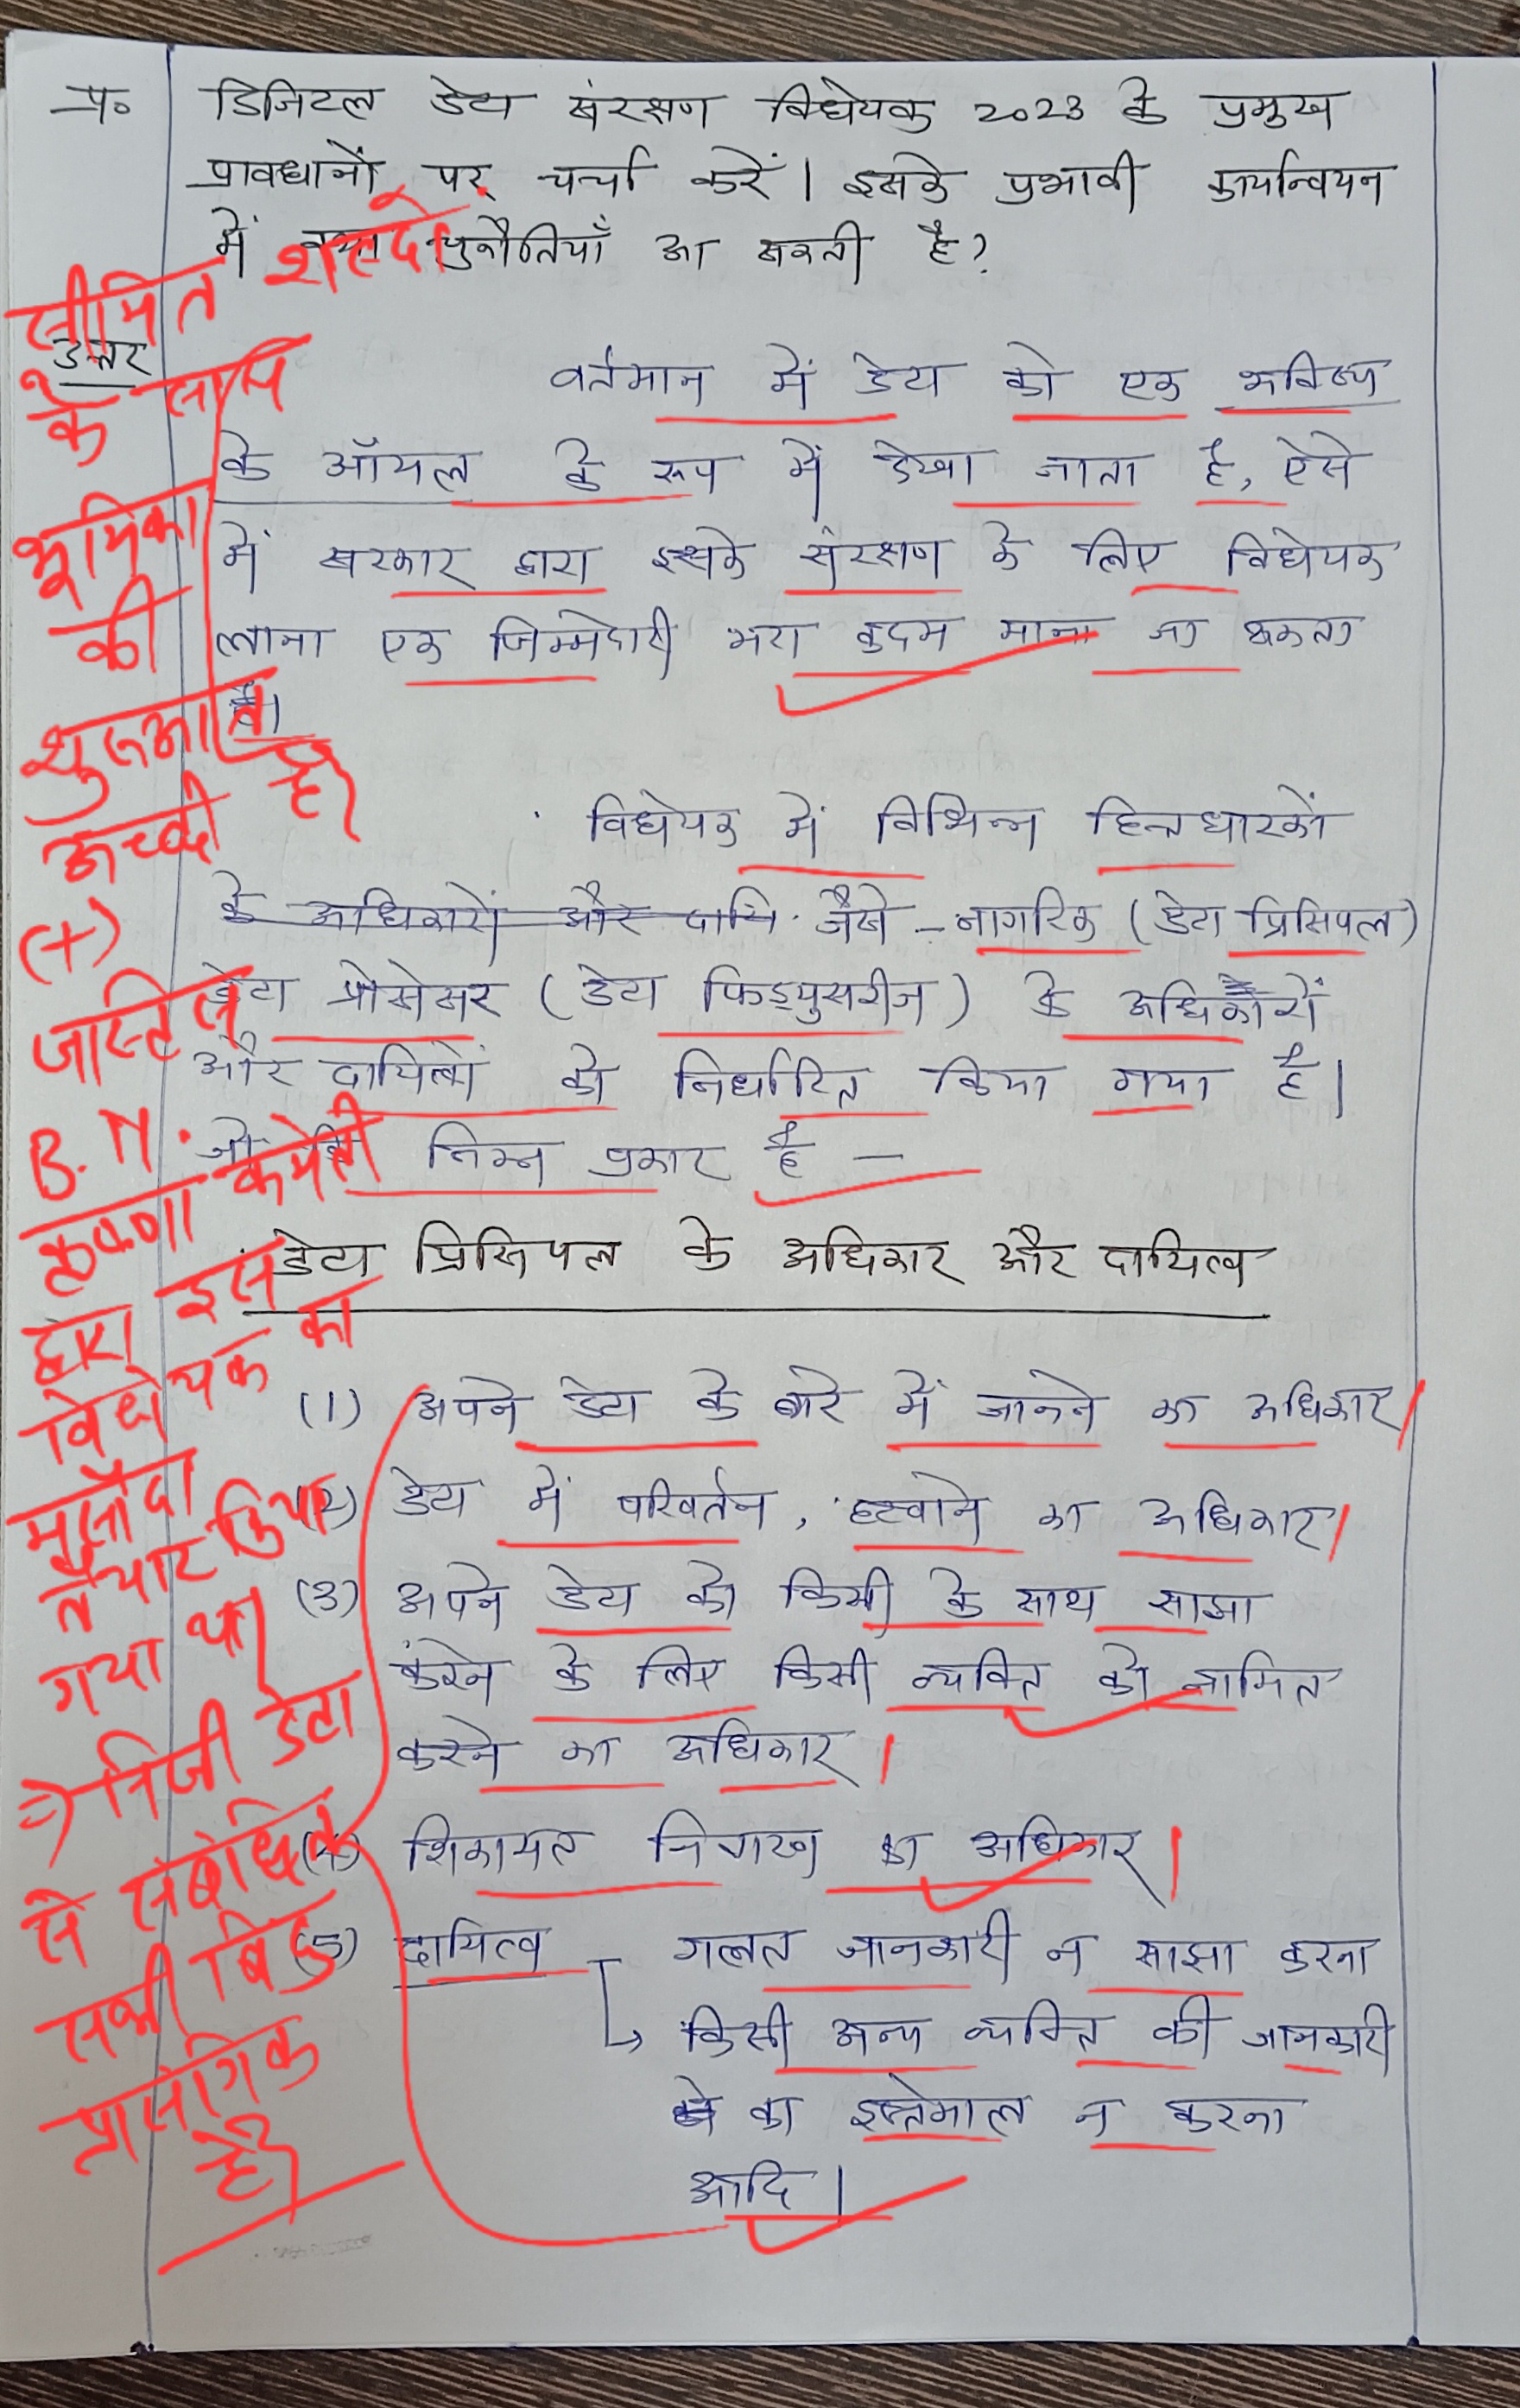 प्र० डिजिटल डेटा संरक्षण विधेयक 2023 के प्रमुख
प्रावधानों पर चर्चा करें। इसके प्रभावी कार्यान्वयन
में क्या चुनौतियाँ आ सकती है?
उत्तर
वर्तमान में डेटा को एक भविष्य
के ऑयल के रूप में देखा जाता है, ऐसे
में सरकार द्वारा इसके संरक्षण के लिए विधेयक
लाना एक जिम्मेदारी भरा कदम माना जा सकता
है।
विधेयक में विभिन्न हितधारकों
के अधिकारों और दायि जैसे - नागरिक (डेटा प्रिंसिपल)
डेटा प्रोसेसर (डेटा फिड्युसरीज) के अधिकारों
और दायित्वों को निर्धारित किया गया है।
जो कि निम्न प्रकार है –
डेटा प्रिंसिपल के अधिकार और दायित्व
(1) अपने डेटा के बारे में जानने का अधिकार।
(2) डेटा में परिवर्तन, हटवाने का अधिकार।
(3) अपने डेटा को किसी के साथ साझा
करने के लिए किसी व्यक्ति को नामित
करने का अधिकार।
(4) शिकायत निवारण का अधिकार।
(5) दायित्व गलत जानकारी न साझा करना
किसी अन्य व्यक्ति की जानकारी
का इस्तेमाल न करना
आदि।
सीमित शब्दों
के साथ
भूमिका
की
शुरुआत
अच्छी है।
(+)
जास्टिस
B.N.
कृष्णा कमेटी
द्वारा इस
विधेयक का
मसौदा
तैयार किया
गया था।
⇒ निजी डेटा
से संबंधित
सभी बिंदु
प्रासंगिक
है।